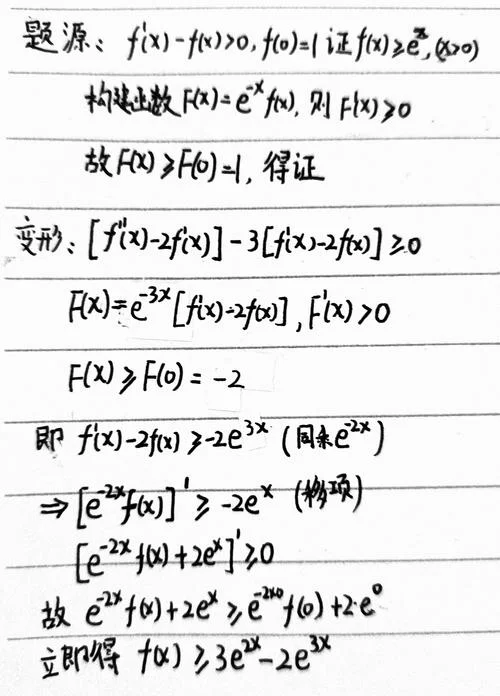 题源: f'(x)-f(x)>0, f(0)=1 证 f(x)≥e^x, (x>0)
构建函数 F(x)=e^{-x}f(x), 则 F'(x)≥0
故 F(x)≥F(0)=1, 得证
变形: [f''(x)-2f'(x)]-3[f'(x)-2f(x)]≥0
F(x)=e^{-3x}[f'(x)-2f(x)], F'(x)>0
F(x)≥F(0)=-2
即 f'(x)-2f(x)≥-2e^{3x} (同乘e^{-2x})
⇒[e^{-2x}f(x)]'≥-2e^x (移项)
[e^{-2x}f(x)+2e^x]'≥0
故 e^{-2x}f(x)+2e^x≥e^{-2×0}f(0)+2·e^0
立即得 f(x)≥3e^{2x}-2e^{3x}